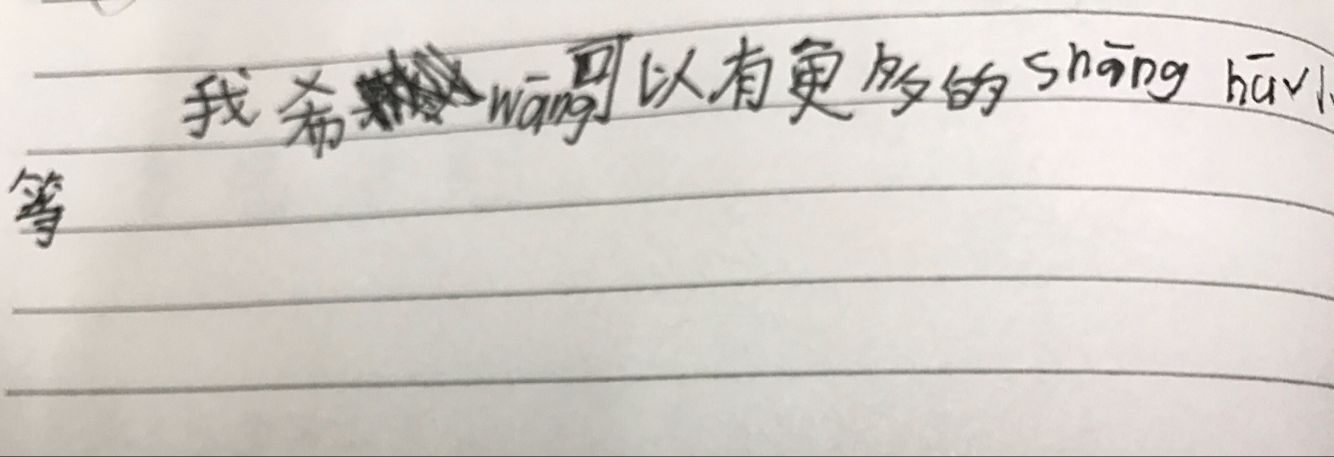 我希wāng可以有更多的 shāng hāu小
等